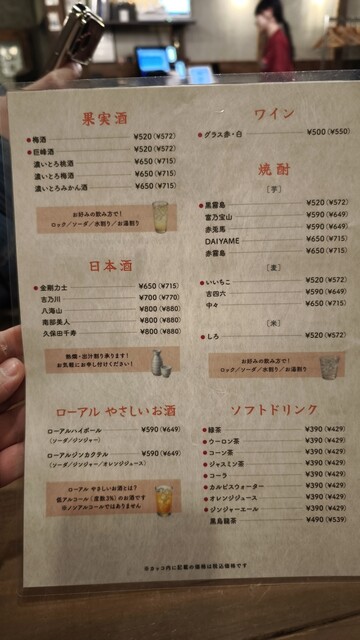 果実酒
●梅酒 ¥520(¥572)
●巨峰酒 ¥520(¥572)
濃いとろ桃酒 ¥650(¥715)
濃いとろ梅酒 ¥650(¥715)
濃いとろみかん酒 ¥650(¥715)
お好みの飲み方で!
ロック/ソーダ/水割り/お湯割り
日本酒
●金剛力士 ¥650(¥715)
吉乃川 ¥700(¥770)
八海山 ¥800(¥880)
南部美人 ¥800(¥880)
久保田千寿 ¥800(¥880)
熱燗・出汁割り承ります!
お気軽にお申し付けください!
ローアル やさしいお酒
ローアルハイボール ¥590(¥649)
(ソーダ/ジンジャー)
ローアルジンカクテル ¥590(¥649)
(ソーダ/ジンジャー/オレンジジュース)
ローアル やさしいお酒とは?
低アルコール(度数3%)のお酒です
※ノンアルコールではありません
ワイン
●グラス赤・白 ¥500(¥550)
焼酎
[芋]
●黒霧島 ¥520(¥572)
富乃宝山 ¥590(¥649)
赤兎馬 ¥590(¥649)
DAIYAME ¥650(¥715)
赤霧島 ¥650(¥715)
[麦]
●いいちこ ¥520(¥572)
吉四六 ¥590(¥649)
中々 ¥650(¥715)
[米]
●しろ ¥520(¥572)
お好みの飲み方で!
ロック/ソーダ/水割り/お湯割り
ソフトドリンク
●緑茶 ¥390(¥429)
●ウーロン茶 ¥390(¥429)
●コーン茶 ¥390(¥429)
●ジャスミン茶 ¥390(¥429)
●コーラ ¥390(¥429)
●カルピスウォーター ¥390(¥429)
●オレンジジュース ¥390(¥429)
●ジンジャーエール ¥390(¥429)
黒烏龍茶 ¥490(¥539)
※カッコ内に記載の価格は税込価格です